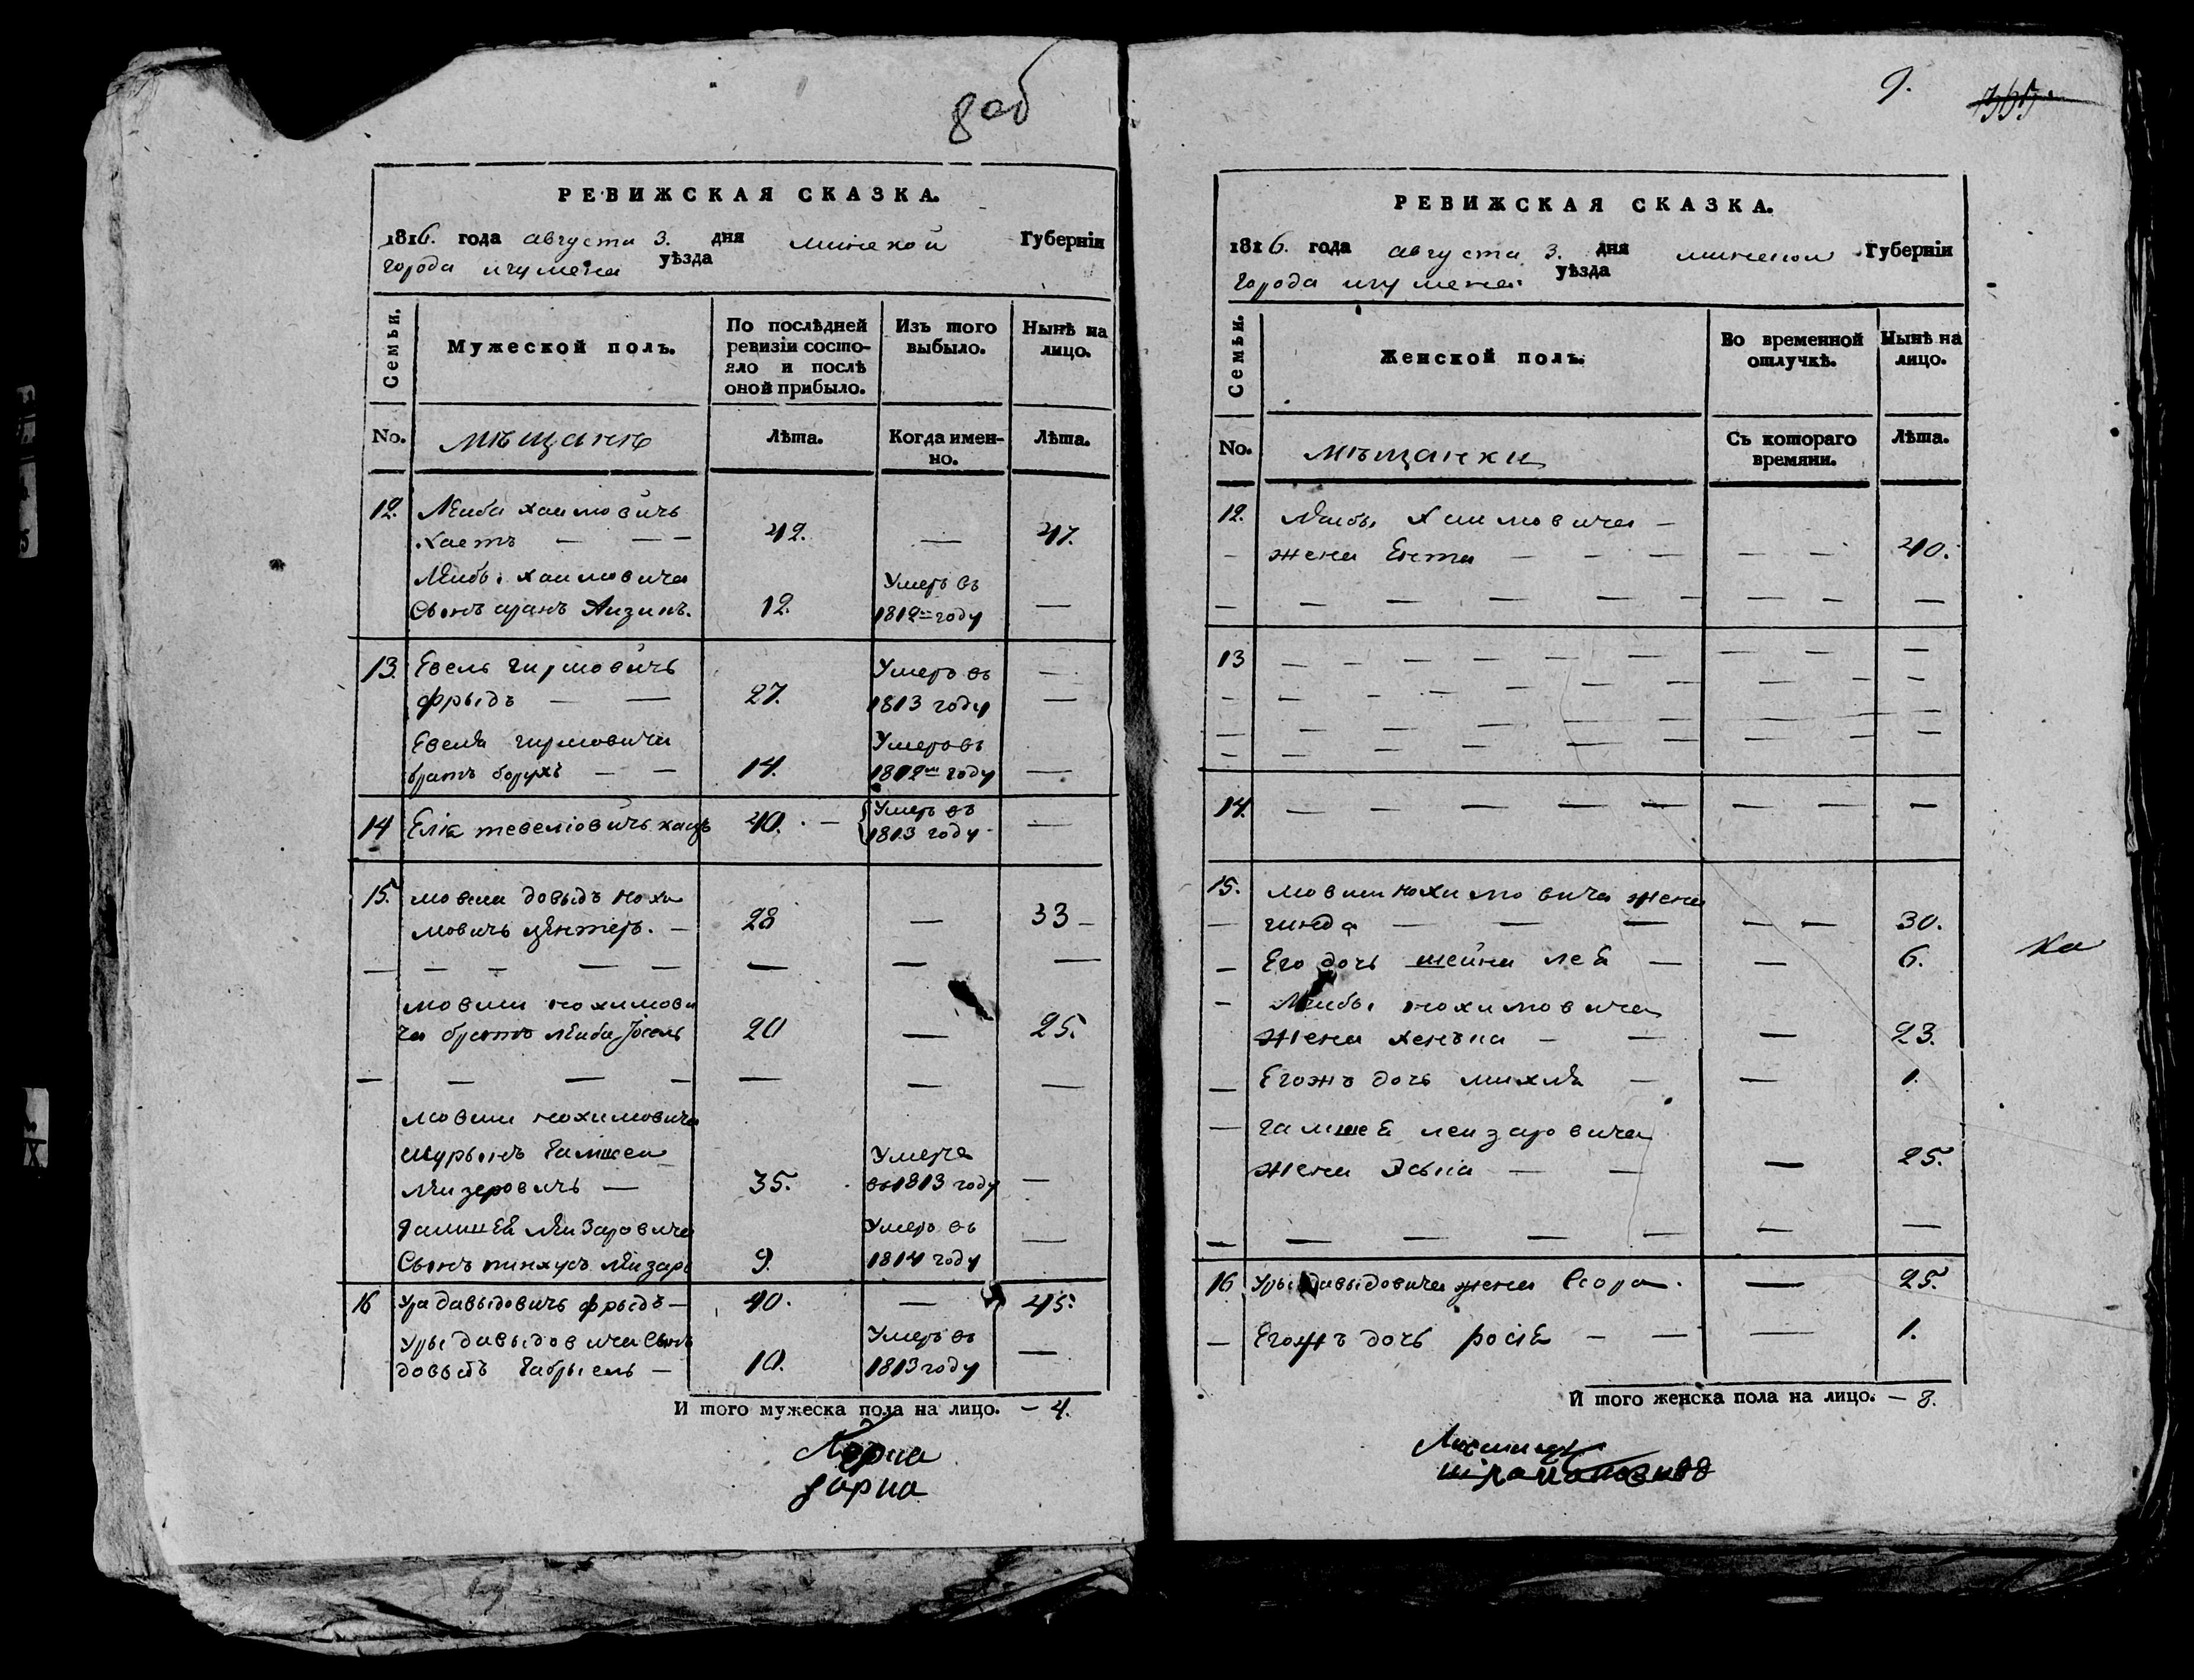 8 об
РЕВИЖСКАЯ СКАЗКА.
1816. года августа 3. дня минской Губерніи
города игумена уѣзда
Семьи.
Мужеской полъ.
По послѣдней ревизіи состояло и послѣ оной прибыло.
Изъ того выбыло.
Нынѣ на лицо.
No. мѣщанѣ Лѣта. Когда именно. Лѣта.
12. Лейба хаимовичъ
Хаетъ — — — 42. — 47.
Лейбы хаимовича Умеръ въ
Сынъ аранъ Айзикъ. 12. 1812 году —
13. Евель гиршовичъ Умеръ въ —
фрыдъ — — 27. 1813 году —
Евеля гиршовича Умеръ въ
братъ борухъ — — 14. 1812 году —
14 Еліа тевеліовичъ кацъ 40. — Умеръ въ 1813 году —
15. мовша довыдъ нохи
мовичъ центеръ. — 28 — 33 —
— — — — — — — —
мовши нохимови
ча братъ лейба Іосель 20 — 25.
— — — — — — —
мовши нохимовича
шурынъ гамшеи Умерѣ
лейзеровичъ — 35. въ 1813 году —
гамшея лейзаровича Умеръ въ —
Сынъ пинхусъ лейзаръ 9. 1814 году
16 Ура давыдовичъ фрыдъ — 40. — 45.
Уры давыдовича Сынъ Умеръ въ
довыдъ габрыель — 10. 1813 году —
И того мужеска пола на лицо. — 4.
9.
РЕВИЖСКАЯ СКАЗКА.
1816. года августа 3. дня минской Губерніи
города игумена уѣзда
Семьи.
Женской полъ.
Во временной отлучкѣ.
Нынѣ на лицо.
No. мѣщанки Съ котораго времяни. Лѣта.
12. Лейбы Хаимовича —
— жена Ента — — — — — 40.
— — — — — — — — —
13 — — — — — — — — —
— — — — — — — — —
— — — — — — — — —
14. — — — — — — — —
15. мовши нохимовича жена
— гинда — — — — — 30.
— Его дочь шейна лея — — 6.
— Лейбы нохимовича
жена хенька — — — 23.
— Егожъ дочь михля — — 1.
— гамшея лейзаровича
жена Эська — — — 25.
— — — — — — —
16 Уры давыдовича жена Сора. — 25.
— Егожъ дочь рося — — — 1.
И того женска пола на лицо. — 8.